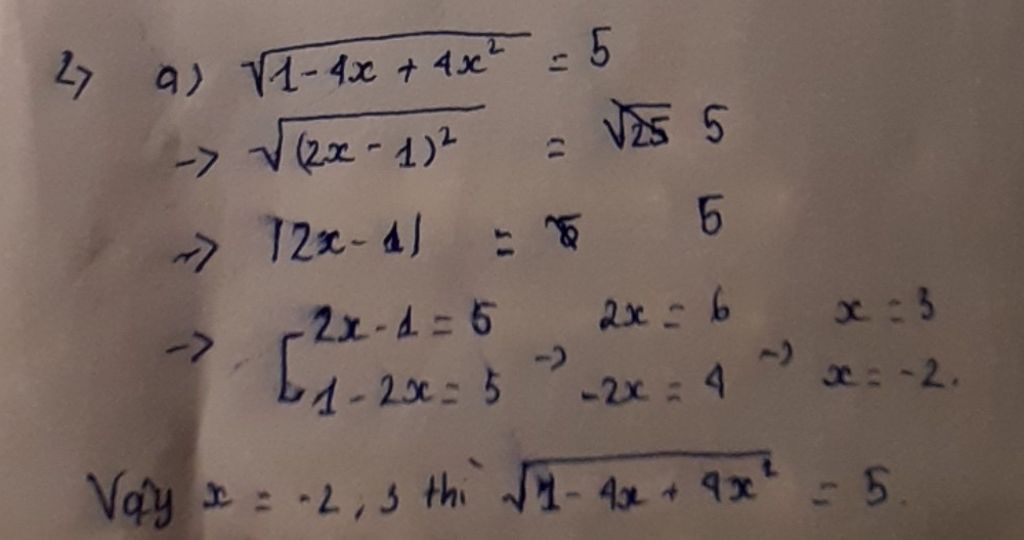 2, a) √(1 - 4x + 4x²) = 5
→ √((2x - 1)²) = 5
→ |2x - 1| = 5
→ [ 2x - 1 = 5 → 2x = 6 → x = 3
1 - 2x = 5 → -2x = 4 → x = -2.
Vậy x = -2, 3 thì √(1 - 4x + 4x²) = 5.